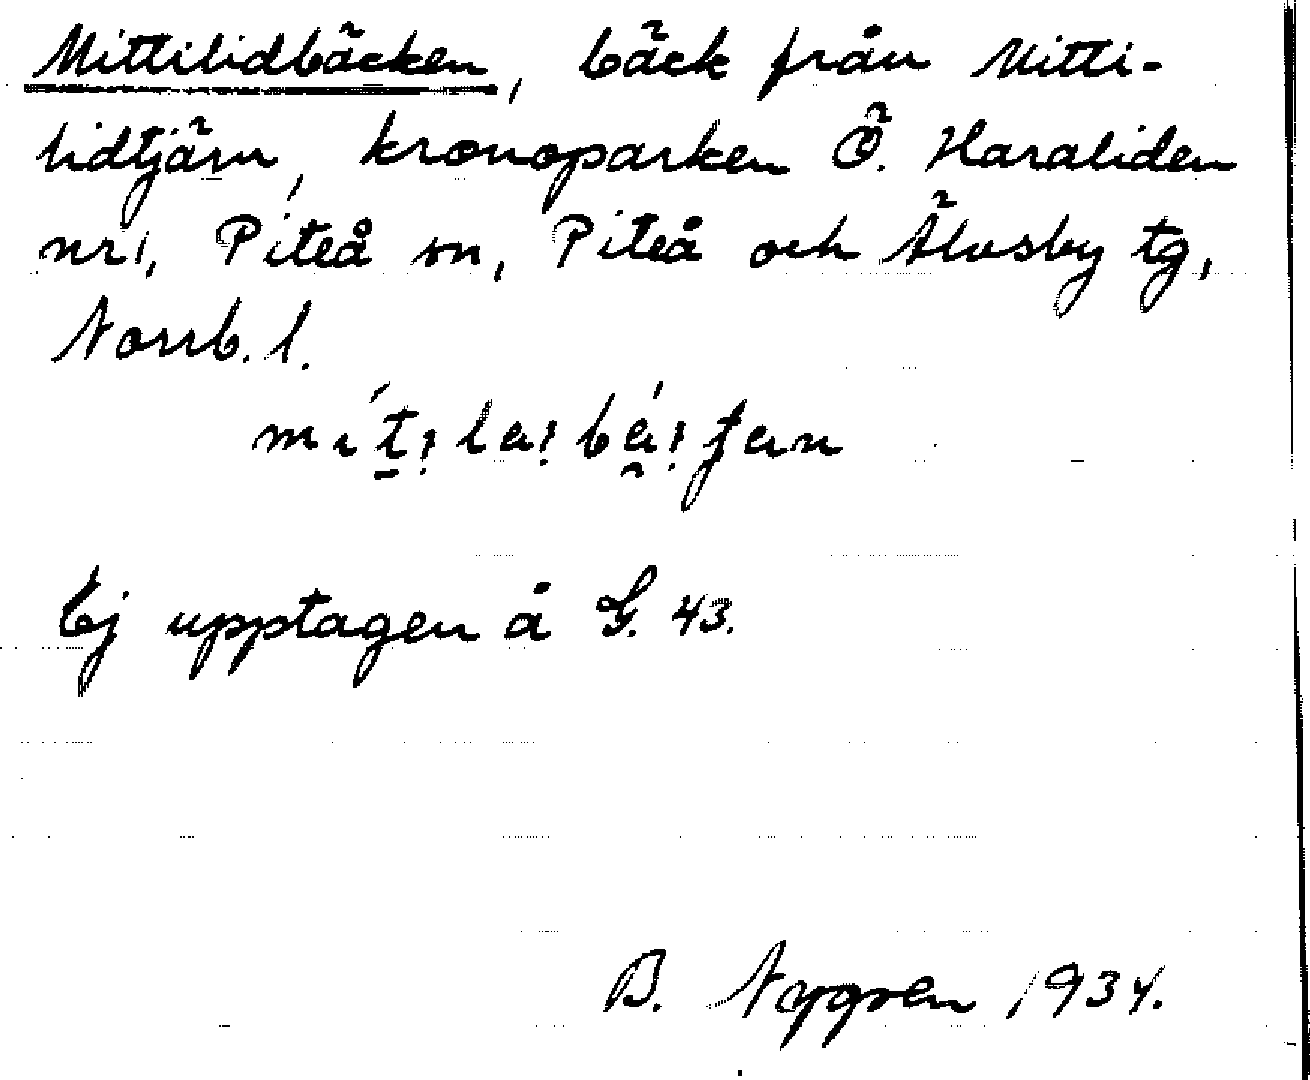 Mittilidbäcken, bäck från Mitti-
lidtjärn, kronoparken Ö. Haraliden
nr 1, Piteå sn, Piteå och Älvsby tg,
Norrb. l.
Ej upptagen å G. 43.
B. Nygren 1934.